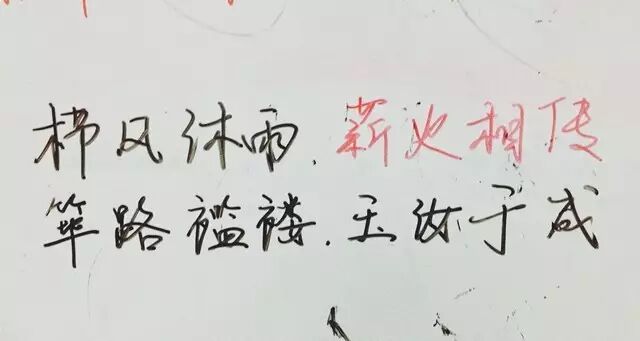 栉风沐雨.薪火相传
筚路褴褛.玉汝于成